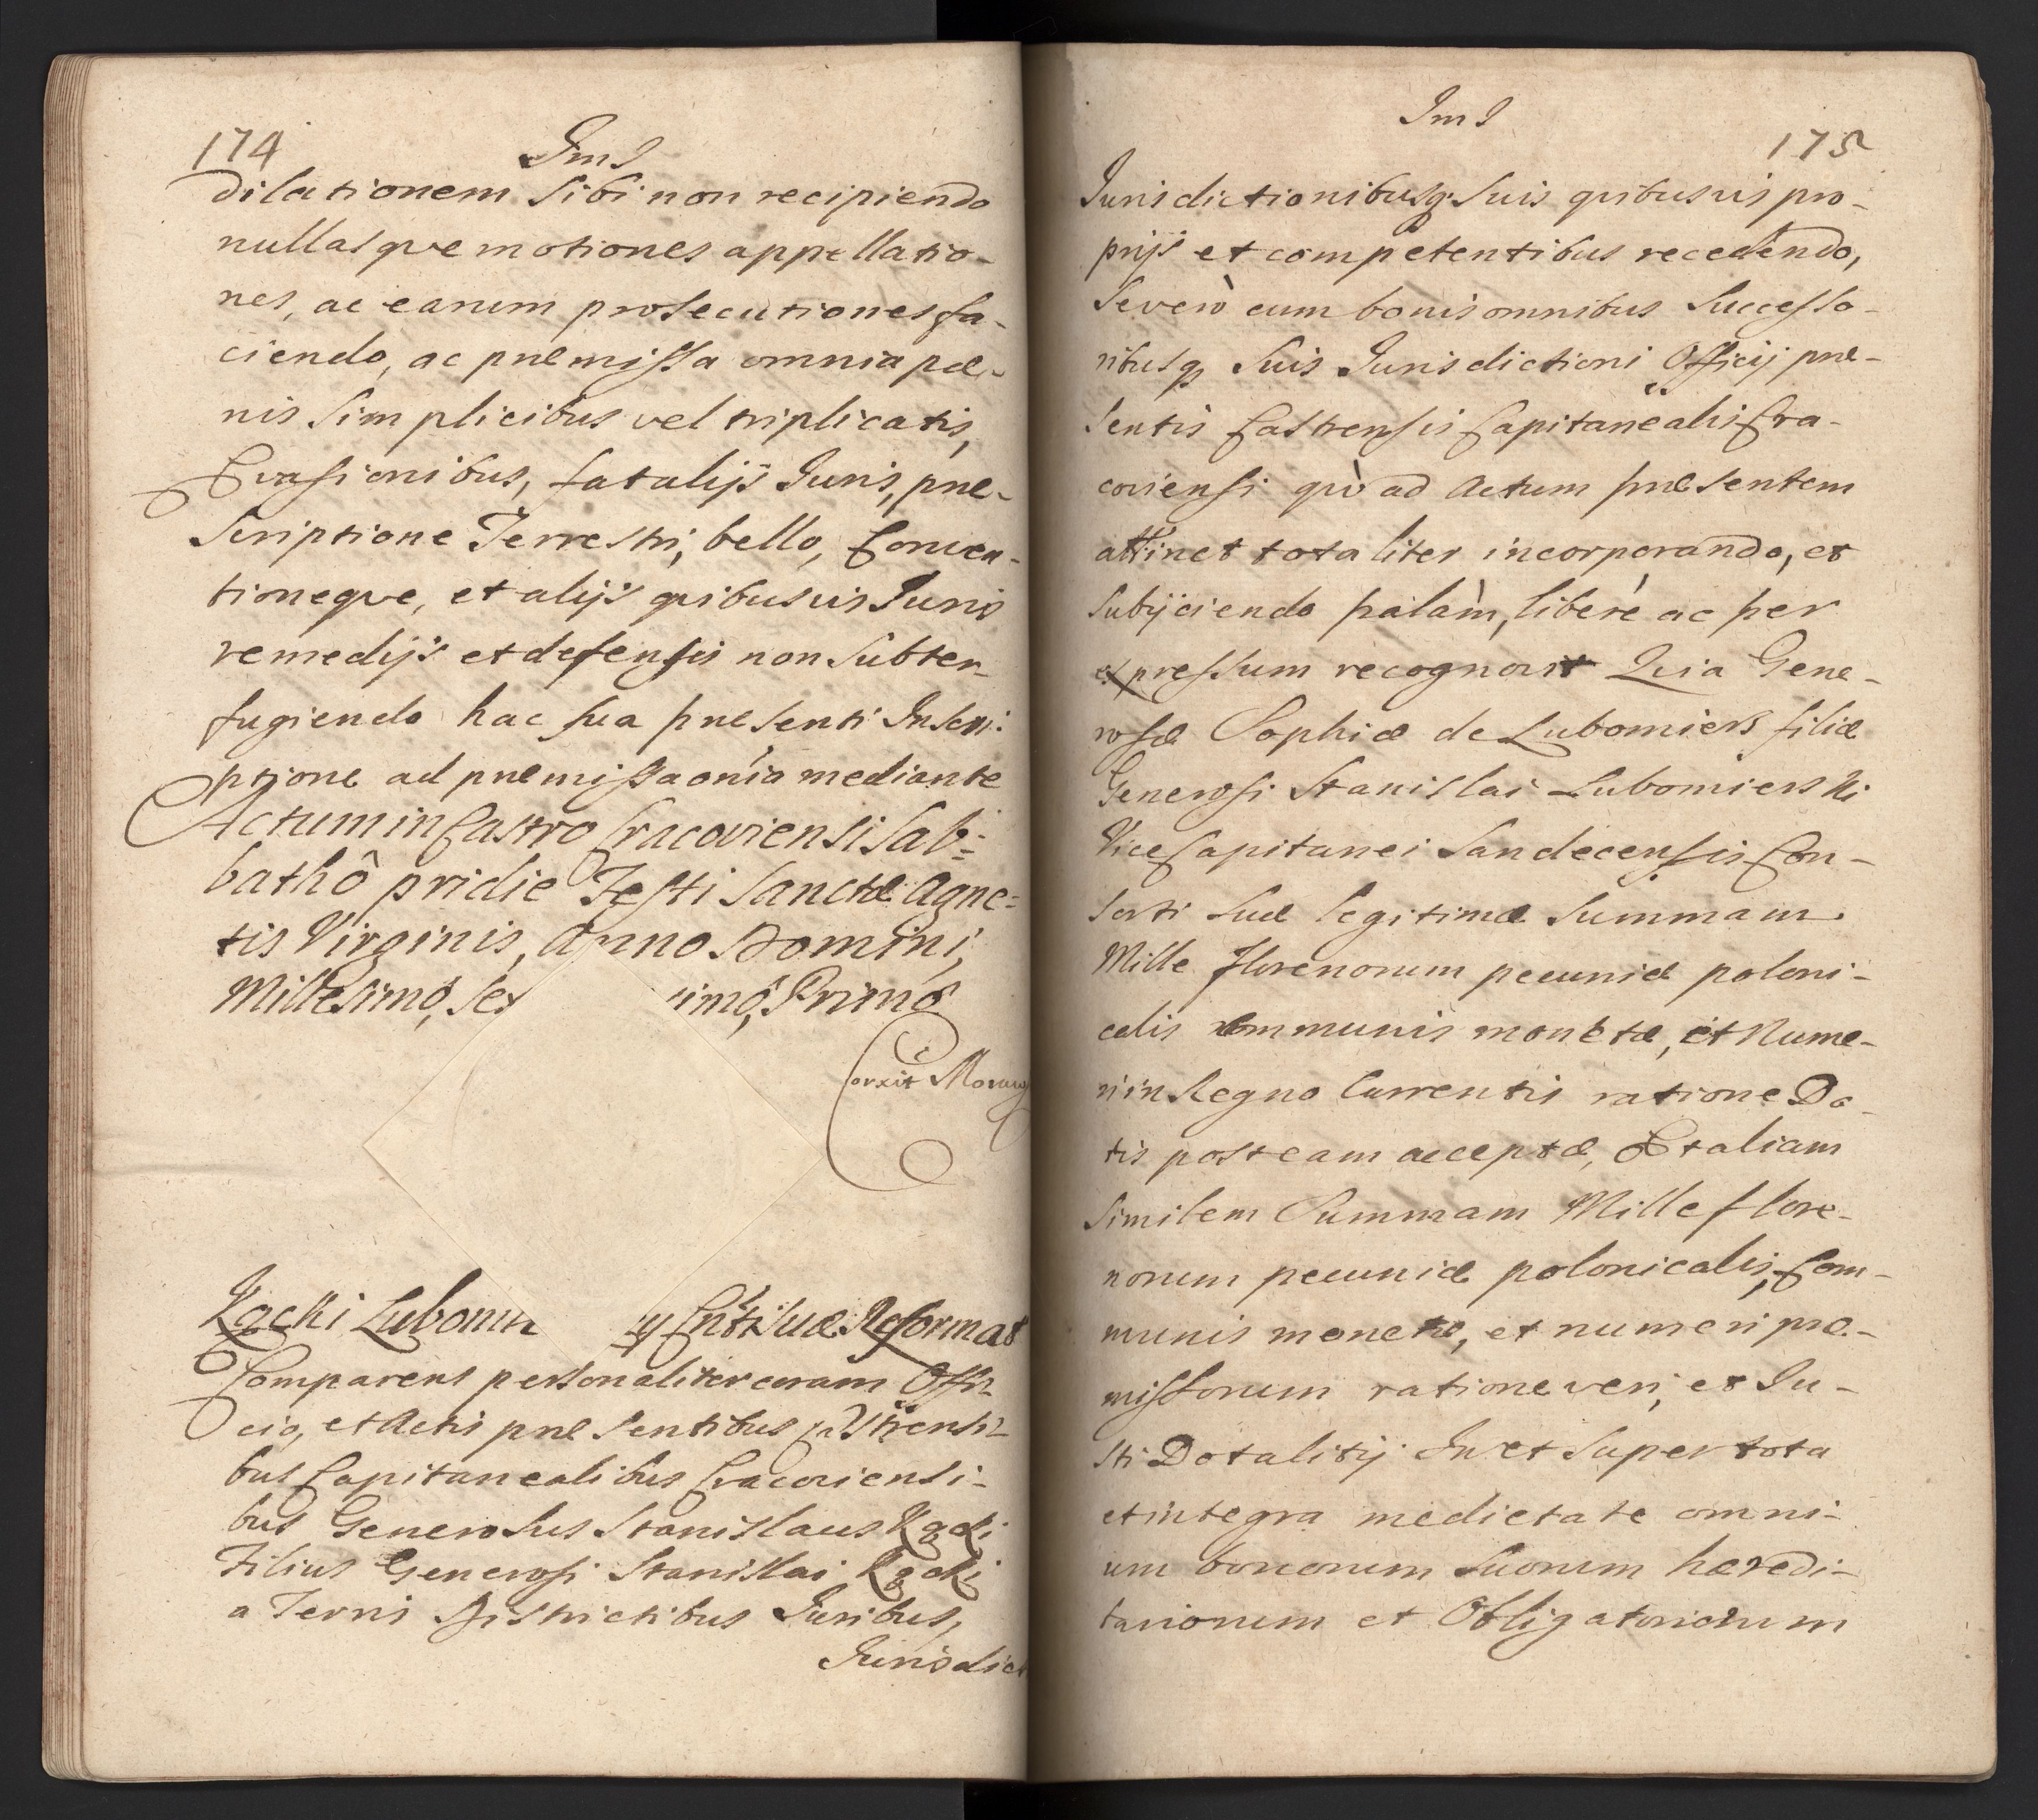 174
ImJ
dilationem Sibi non recipiendo
nullasque motiones appellatio-
nes, ac earum prosecutiones fa-
ciendo, ac præmissa omnia pœ-
nis Simplicibus vel triplicatis,
Evasionibus, fatalijs Juris, præ-
Scriptione Terrestri, bello, Conven-
tioneque, et alijs quibusvis Juris
remedijs et defensis non Subter-
fugiendo hac sua præsenti Inscri-
ptione ad præmissa onia mediante
Actum in Castro Cracoviensi Sab-
bathô pridie Festi Sanctæ Agne-
tis Virginis, Anno Domini,
Millesimô, Sex imô, Primô
Corexit
Kącki Lubomie y Cnsti Suæ Reformat
Comparens personaliter coram Offi-
cio, et Actis præsentibus Castrensi-
bus Capitanealibus Cracoviensi-
bus Generosus Stanislaus Kącki
Filius Generosi Stanislai Kącki
a Terris Districtibus Juribus,
Jurisdict
ImJ
175
Jurisdictionibusq; Suis quibusvis pro-
prijs et competentibus recedendo,
Severò cum bonis omnibus Successo-
ribusq; Suis Jurisdictioni Officij præ-
sentis Castrensis Capitanealis Cra-
coviensi quò ad Actum præsentem
attinet totaliter incorporando, et
Subijciendo palàm, liberè ac per
expressum recognovit Quia Gene-
rosæ Sophiæ de Lubomiers filiæ
Generosi Stanislai Lubomierski
Vice Capitanei Sandecensis Con-
sorti Suæ legitimæ Summam
Mille Florenorum pecuniæ poloni-
calis communis monetæ, et Nume-
ri in Regno Currentis ratione Do-
tis post eam acceptæ, Et aliam
Similem Summam Mille flore-
norum pecuniæ polonicalis, Com-
munis monetæ, et numeri præ-
missorum ratione veri, et Ju-
sti Dotalitij In et Super tota
et integra medietate omni-
um bonorum Suorum hæredi-
tariorum et Obligatoriorum